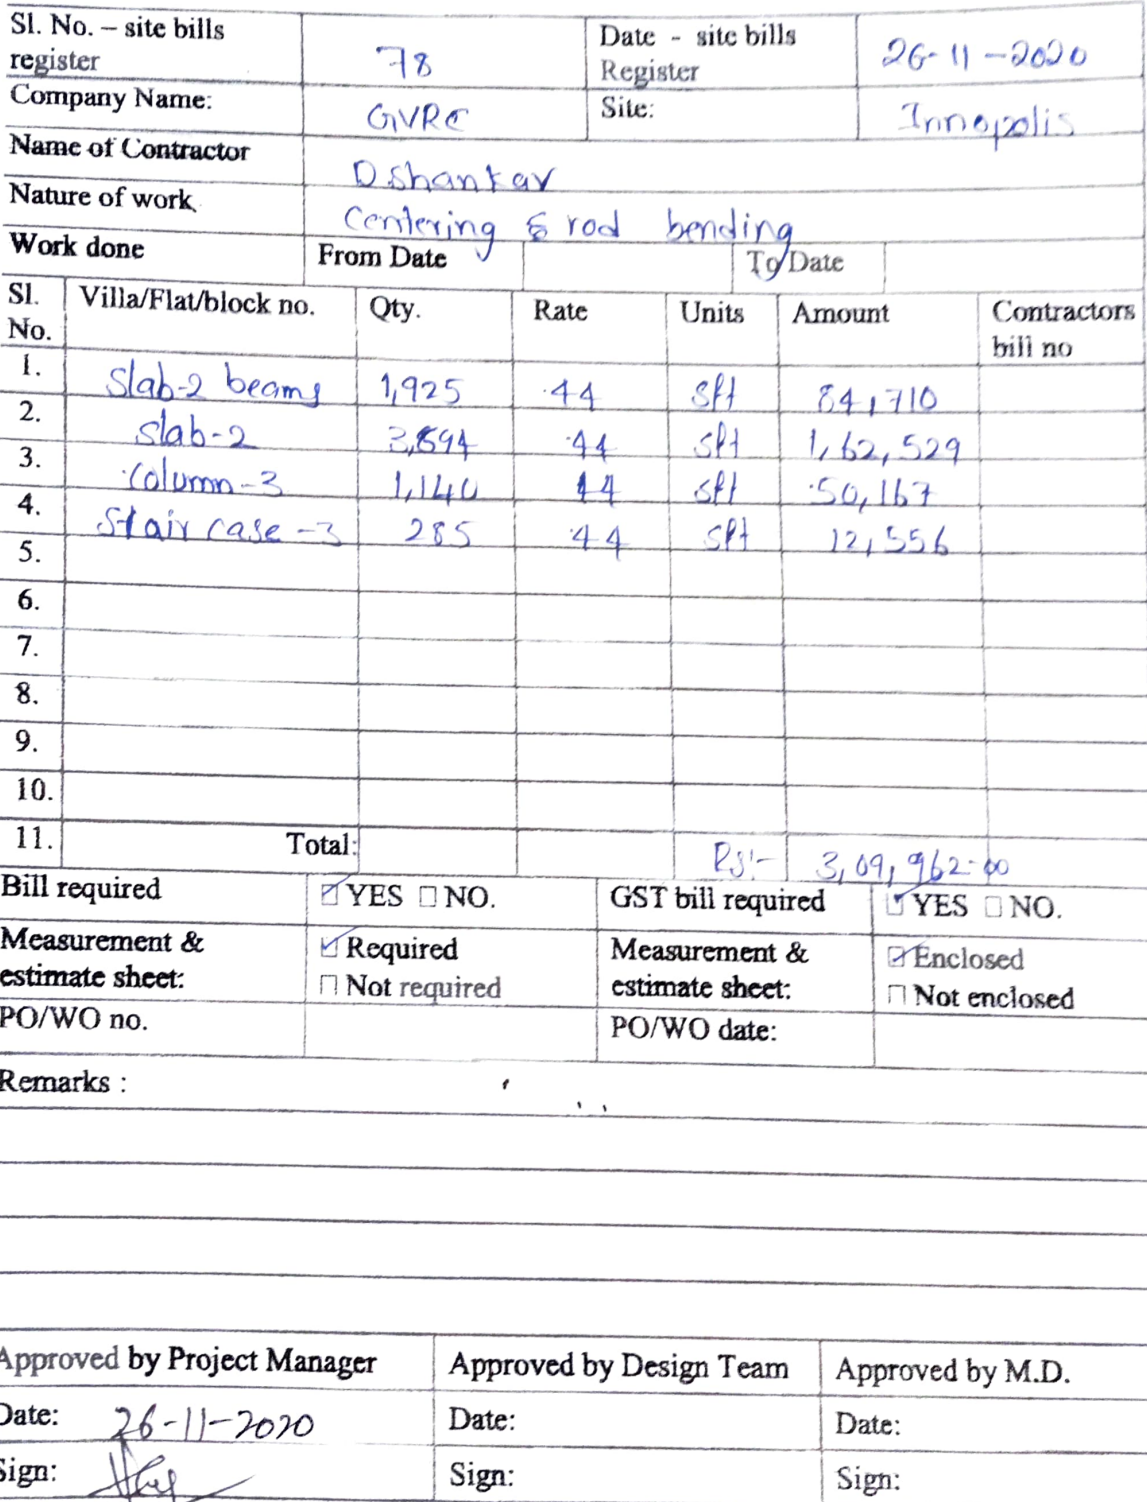 Sl. No. – site bills register 78 Date - site bills Register 26-11-2020
Company Name: GVRC Site: Innopolis
Name of Contractor D.Shankar
Nature of work Centering & rod bending
Work done From Date To Date
Sl. No. Villa/Flat/block no. Qty. Rate Units Amount Contractors bill no
1. Slab-2 beams 1,925 44 sft 84,710
2. Slab-2 3,694 44 sft 1,62,529
3. Column-3 1,140 44 sft 50,167
4. Stair case-3 285 44 sft 12,556
5.
6.
7.
8.
9.
10.
11. Total: Rs:- 3,09,962-00
Bill required ☑ YES ☐ NO. GST bill required ☑ YES ☐ NO.
Measurement & estimate sheet: ☑ Required ☐ Not required Measurement & estimate sheet: ☑ Enclosed ☐ Not enclosed
PO/WO no. PO/WO date:
Remarks :
Approved by Project Manager Approved by Design Team Approved by M.D.
Date: 26-11-2020 Date: Date:
Sign: Sign: Sign: